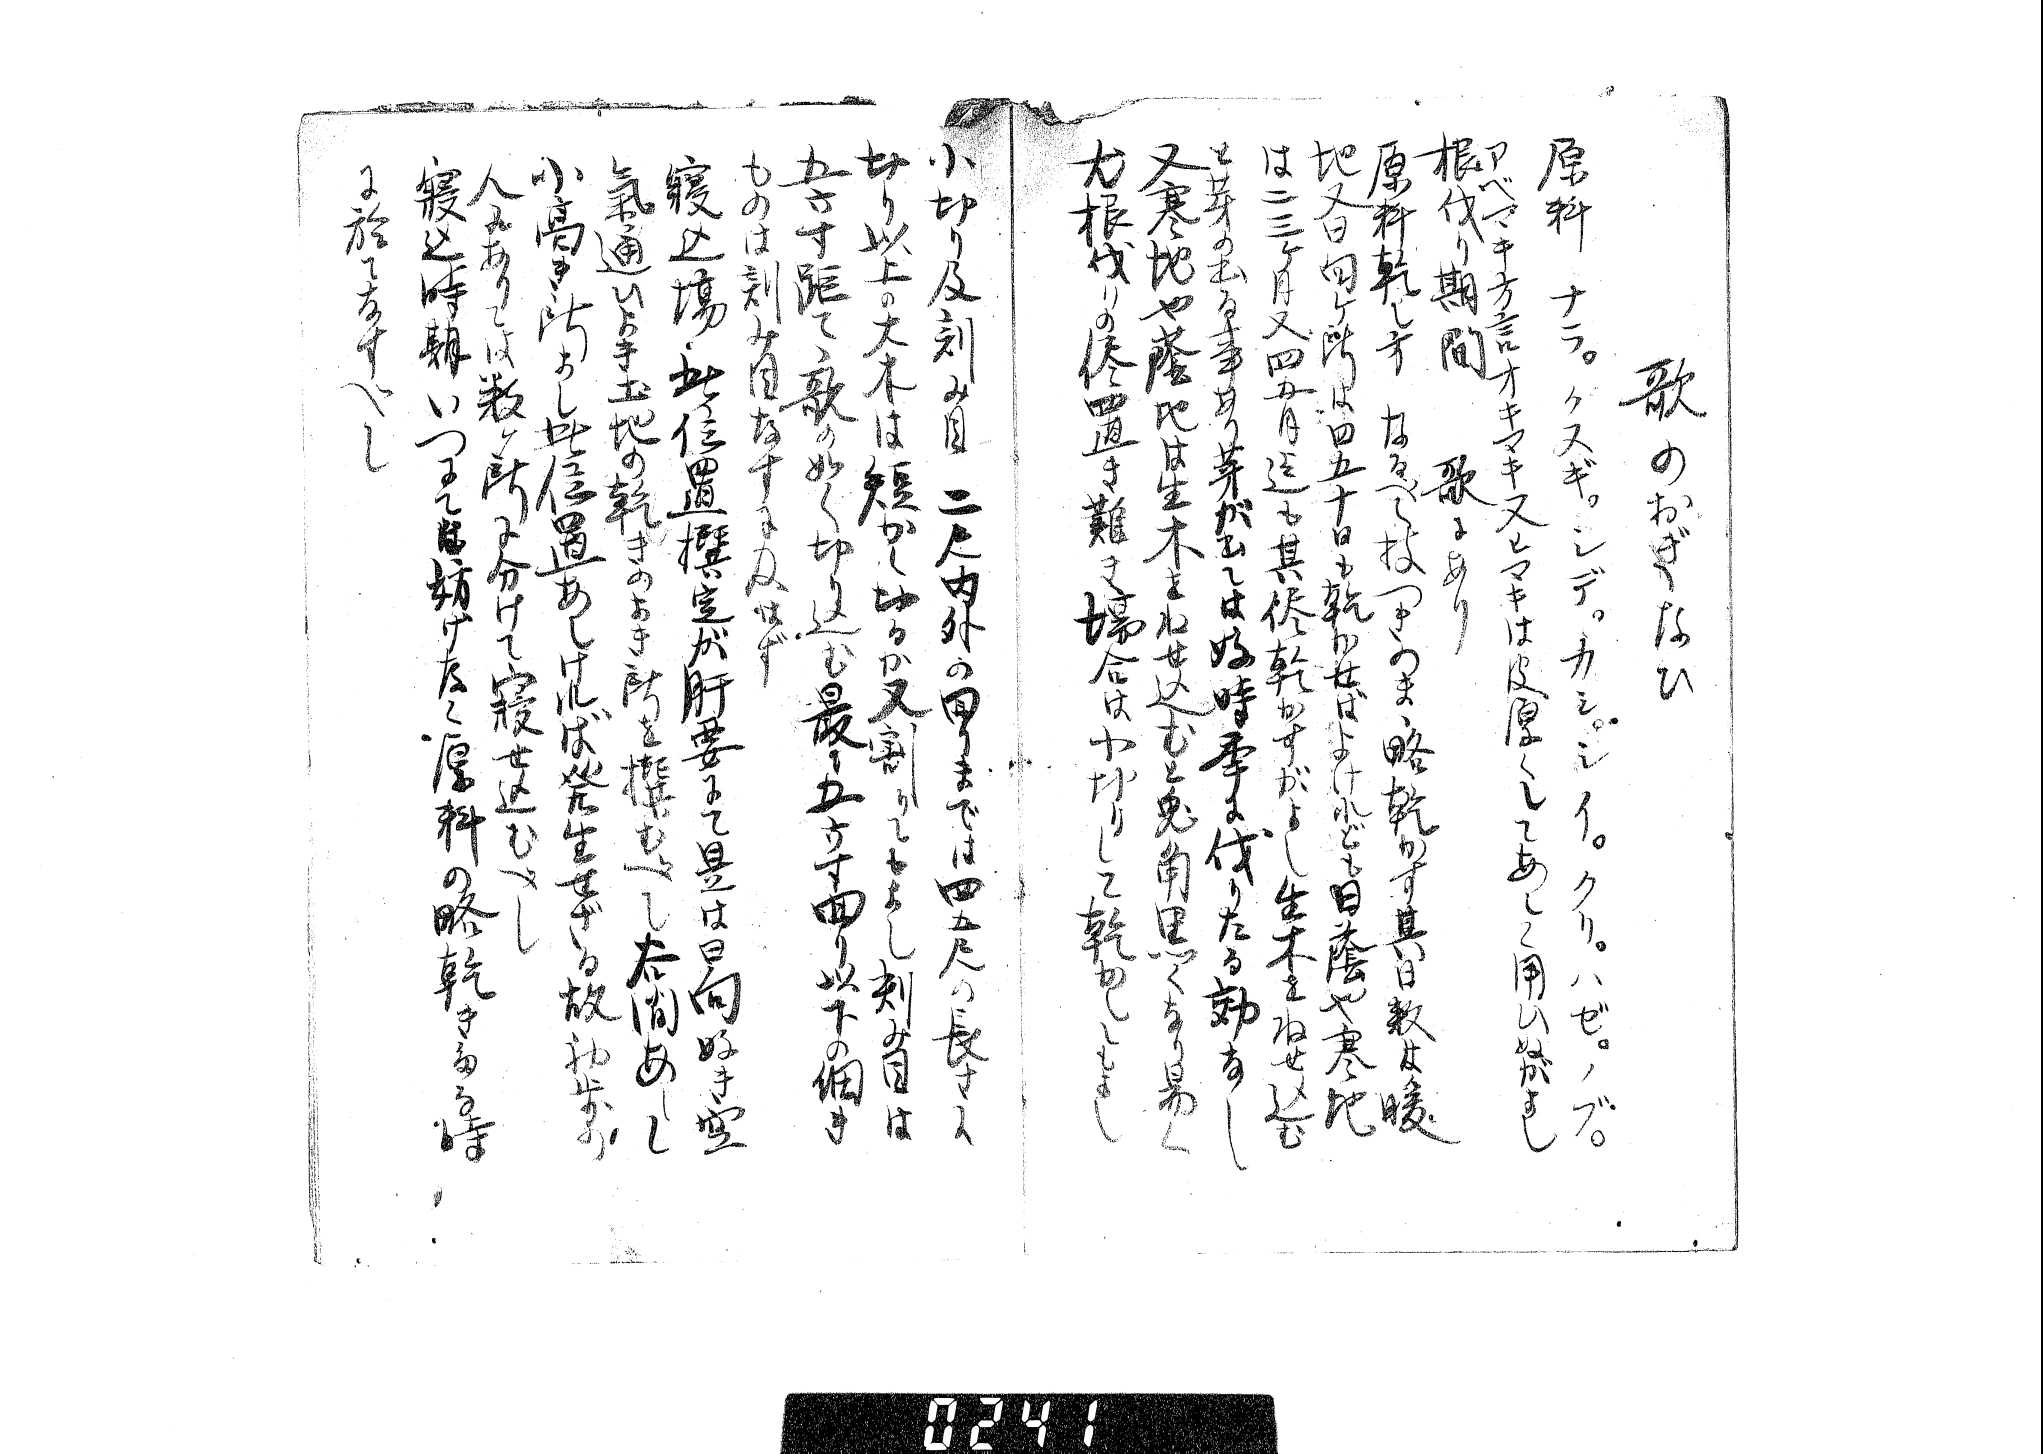 歌のおぎなひ
原料 ナラ。クヌギ。シデ。カシ。シイ。クリ。ハゼ。ノブ。
アベマキ方言オキマキ又ヒマキは皮厚くしてあしく用ひぬがよし
根伐り期間 歌にあり
原料乾し方 なるべく枝つきのまゝ略乾かす其日数は暖
地又日向ヶ所は四五十日も乾かせばよけれども日蔭や寒地
は二三ヶ月又四五月迄も其侭乾かすがよし生木をねせ込む
と芽の出る事あり芽が出ては好時季に伐りたる効なし
又寒地や蔭地は生木をねせ込むと兎角黒くなり易く
尤根伐りの侭置き難き場合は小切りして乾かしもよし
小切り及刻み目 二尺内外の回りまでは四五尺の長さに
切り以上の大木は短かく切るか又割りてもよし刻み目は
五六寸距て歌の如く切り込む最も五六寸回り以下の細き
ものは刻み目なすに及ばず
寝込場 此位置撰定が肝要にて是は日向好き空
氣通ひよき土地の乾きのよき所を撰むべし谷間あしし
小高き所よし此位置あしければ発生せざる故初歩の
人にありては数ヶ所に分けて寝せ込むべし
寝込時期 いつにても妨げなく原料の略乾きたる時
に於てなすべし
0241